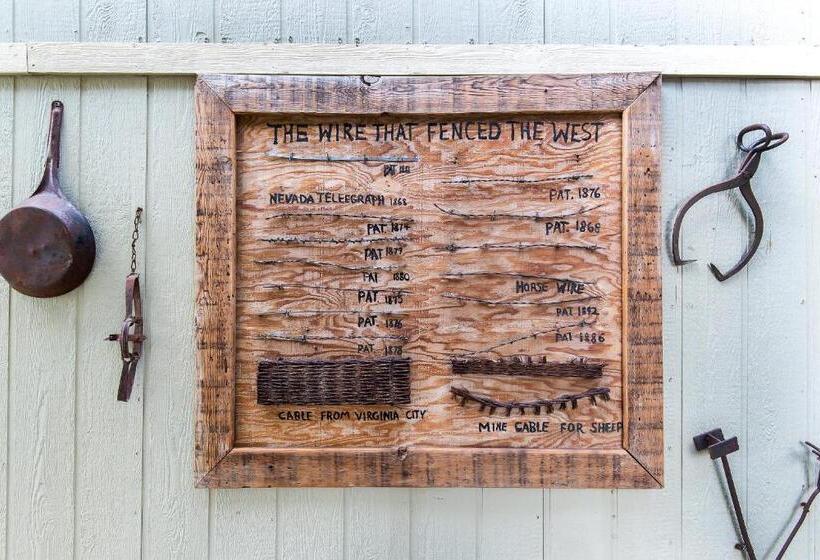 THE WIRE THAT FENCED THE WEST
PAT
NEVADA TELEEGRAPH 1868
PAT. 1874
PAT. 1879
PAT 1880
PAT. 1875
PAT. 1876
PAT. 1878
CABLE FROM VIRGINIA CITY
PAT. 1876
PAT. 1868
HORSE WIRE
PAT 1892
PAT 1886
MINE CABLE FOR SHEEP